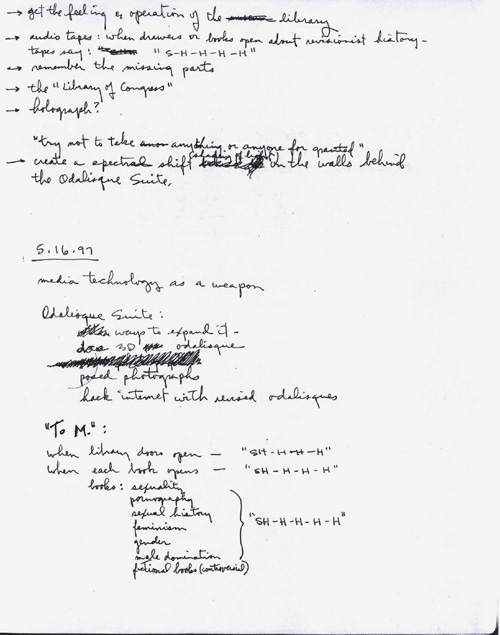 → get the feeling & operation of the library
→ audio tapes: when drawers or books open about revisionist history-
tapes say: "S-H-H-H-H"
→ remember the missing parts
→ the "Library of Congress"
→ holograph?
"try not to take anything or anyone for granted"
→ create a spectral shift in the walls behind
the Odalisque Suite,
5.16.97
media technology as a weapon
Odalisque Suite:
ways to expand it -
3D odalisque
posed photographs
hack internet with revised odalisques
"To M.":
when library doors open — "SH-H-H-H"
when each book opens — "SH-H-H-H-H"
books: sexuality
pornography
sexual history
feminism
gender
male domination
fictional books (controversial)
"SH-H-H-H-H"